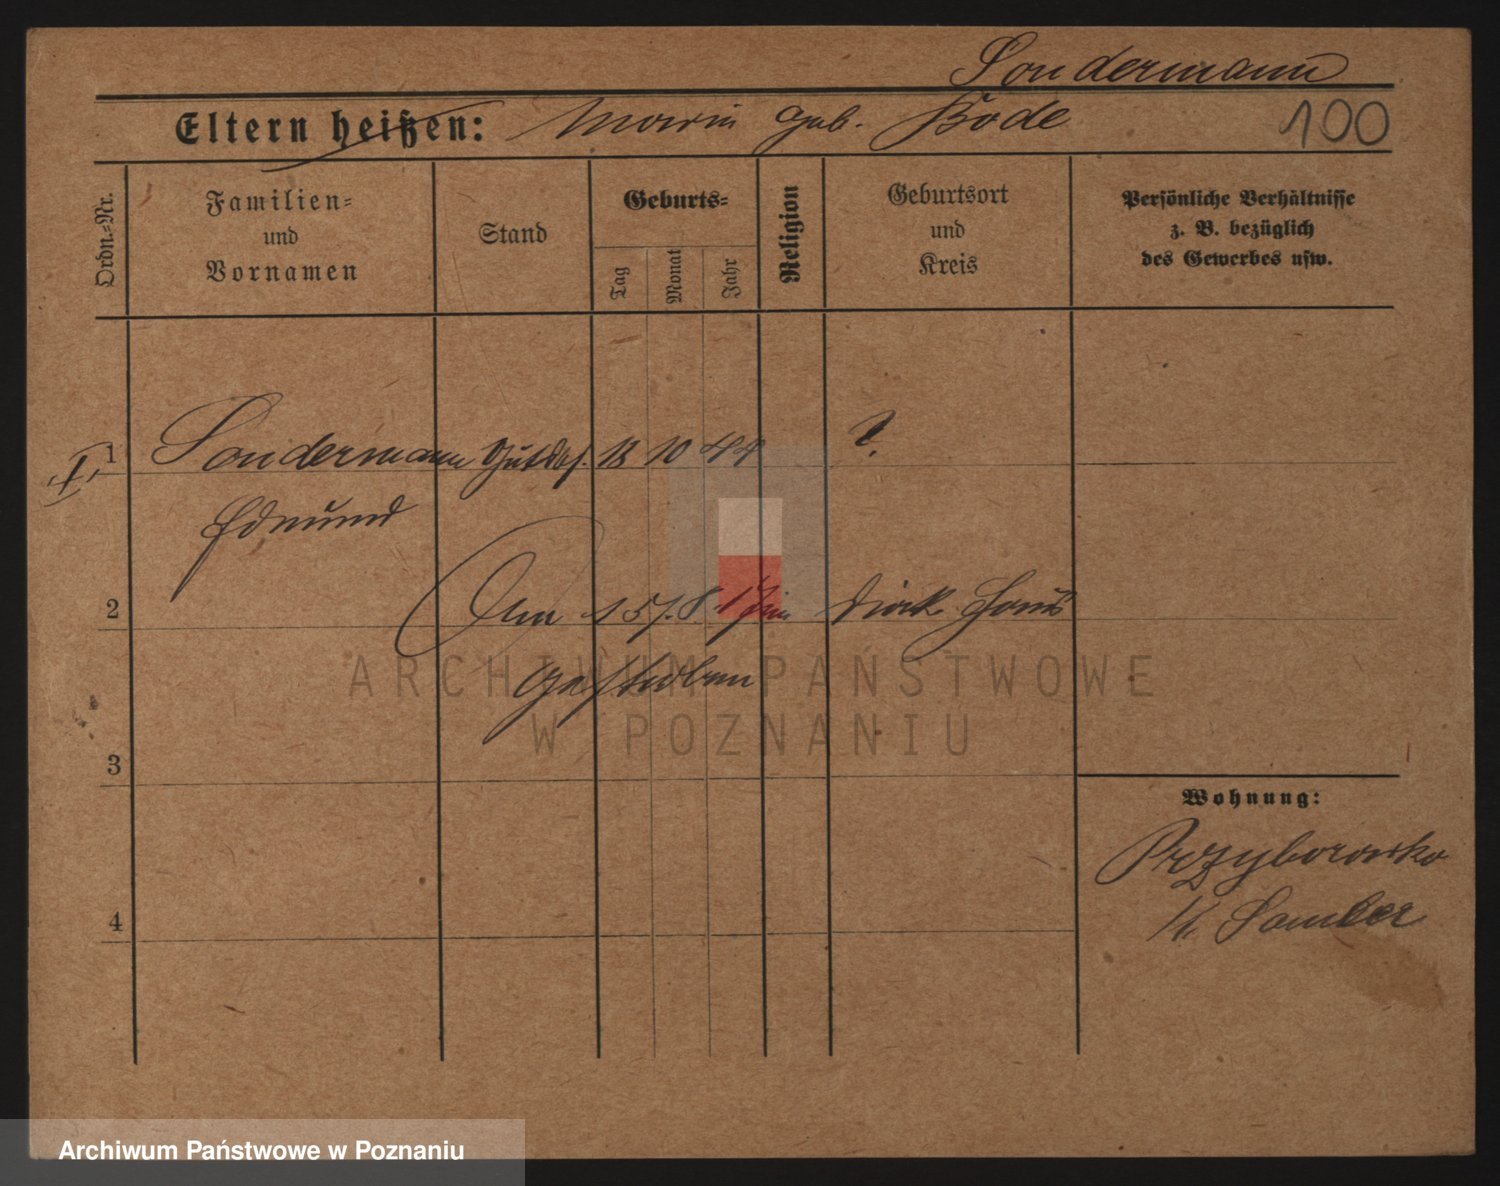 Sondermann
Eltern heißen: Marie geb. Bode
100
Ordn.=Nr.
Familien=
und
Vornamen
Stand
Geburts=
Tag
Monat
Jahr
Religion
Geburtsort
und
Kreis
Persönliche Verhältnisse
z. B. bezüglich
des Gewerbes usw.
1 Sondermann Gutsbes. 18 10 44 ?
Edmund
2 Am 15/.8. hier
gestorben
3
4
Wohnung:
Przyborowko
b. Samter
ARCHIWUM PAŃSTWOWE
W POZNANIU
Archiwum Państwowe w Poznaniu